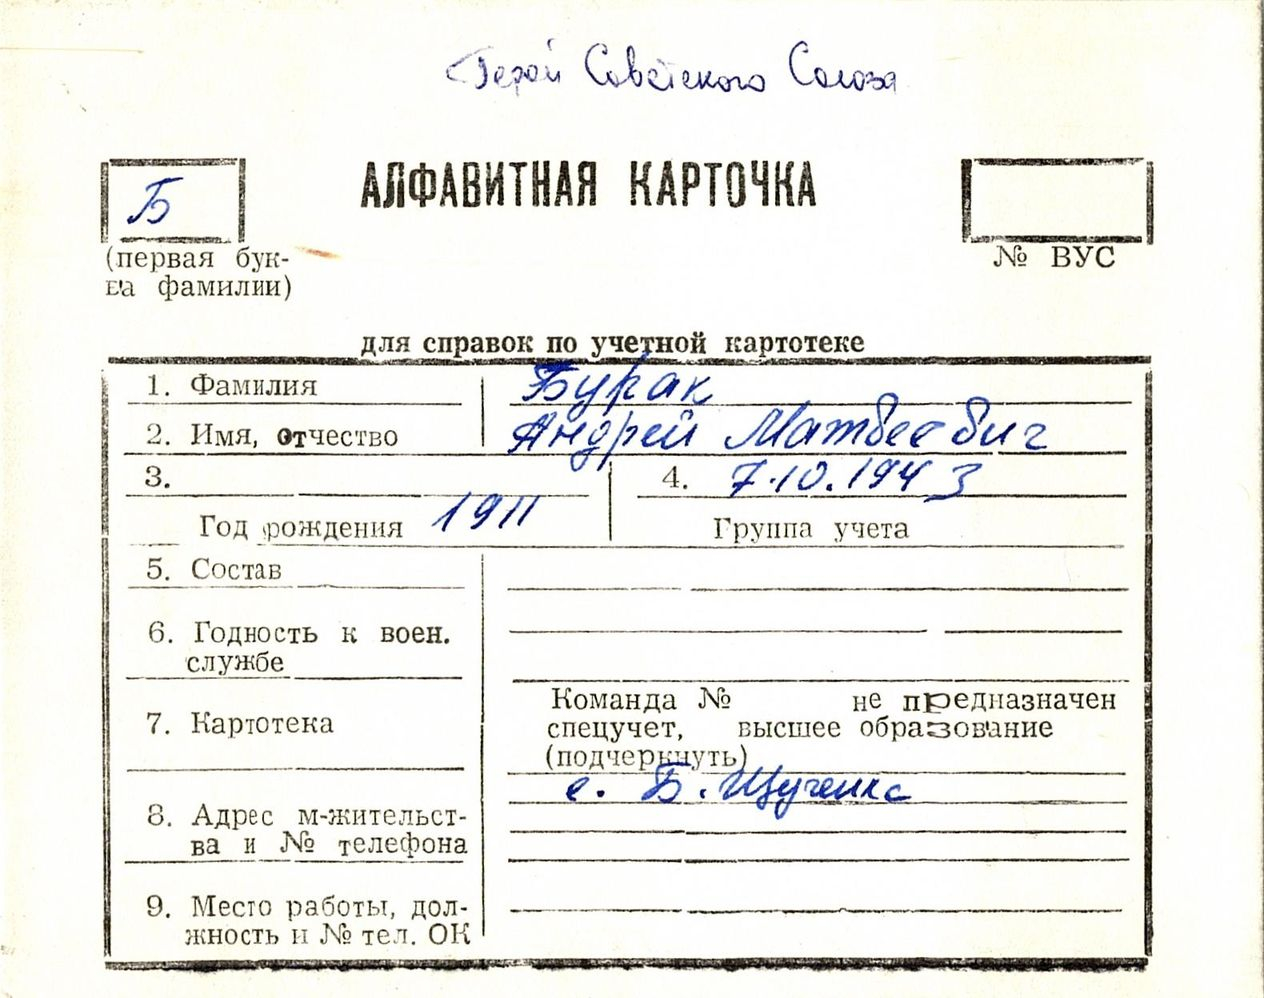 Герой Советского Союза
АЛФАВИТНАЯ КАРТОЧКА
Б
(первая бук-
ва фамилии)
№ ВУС
для справок по учетной картотеке
1. Фамилия Бурак
2. Имя, отчество Андрей Матвеевич
3.
4. 7.10.1943
Год рождения 1911
Группа учета
5. Состав
6. Годность к воен.
службе
7. Картотека
Команда № не предназначен
спецучет, высшее образование
(подчеркнуть)
с. Б. Щученка
8. Адрес м-жительст-
ва и № телефона
9. Место работы, дол-
жность и № тел. ОК